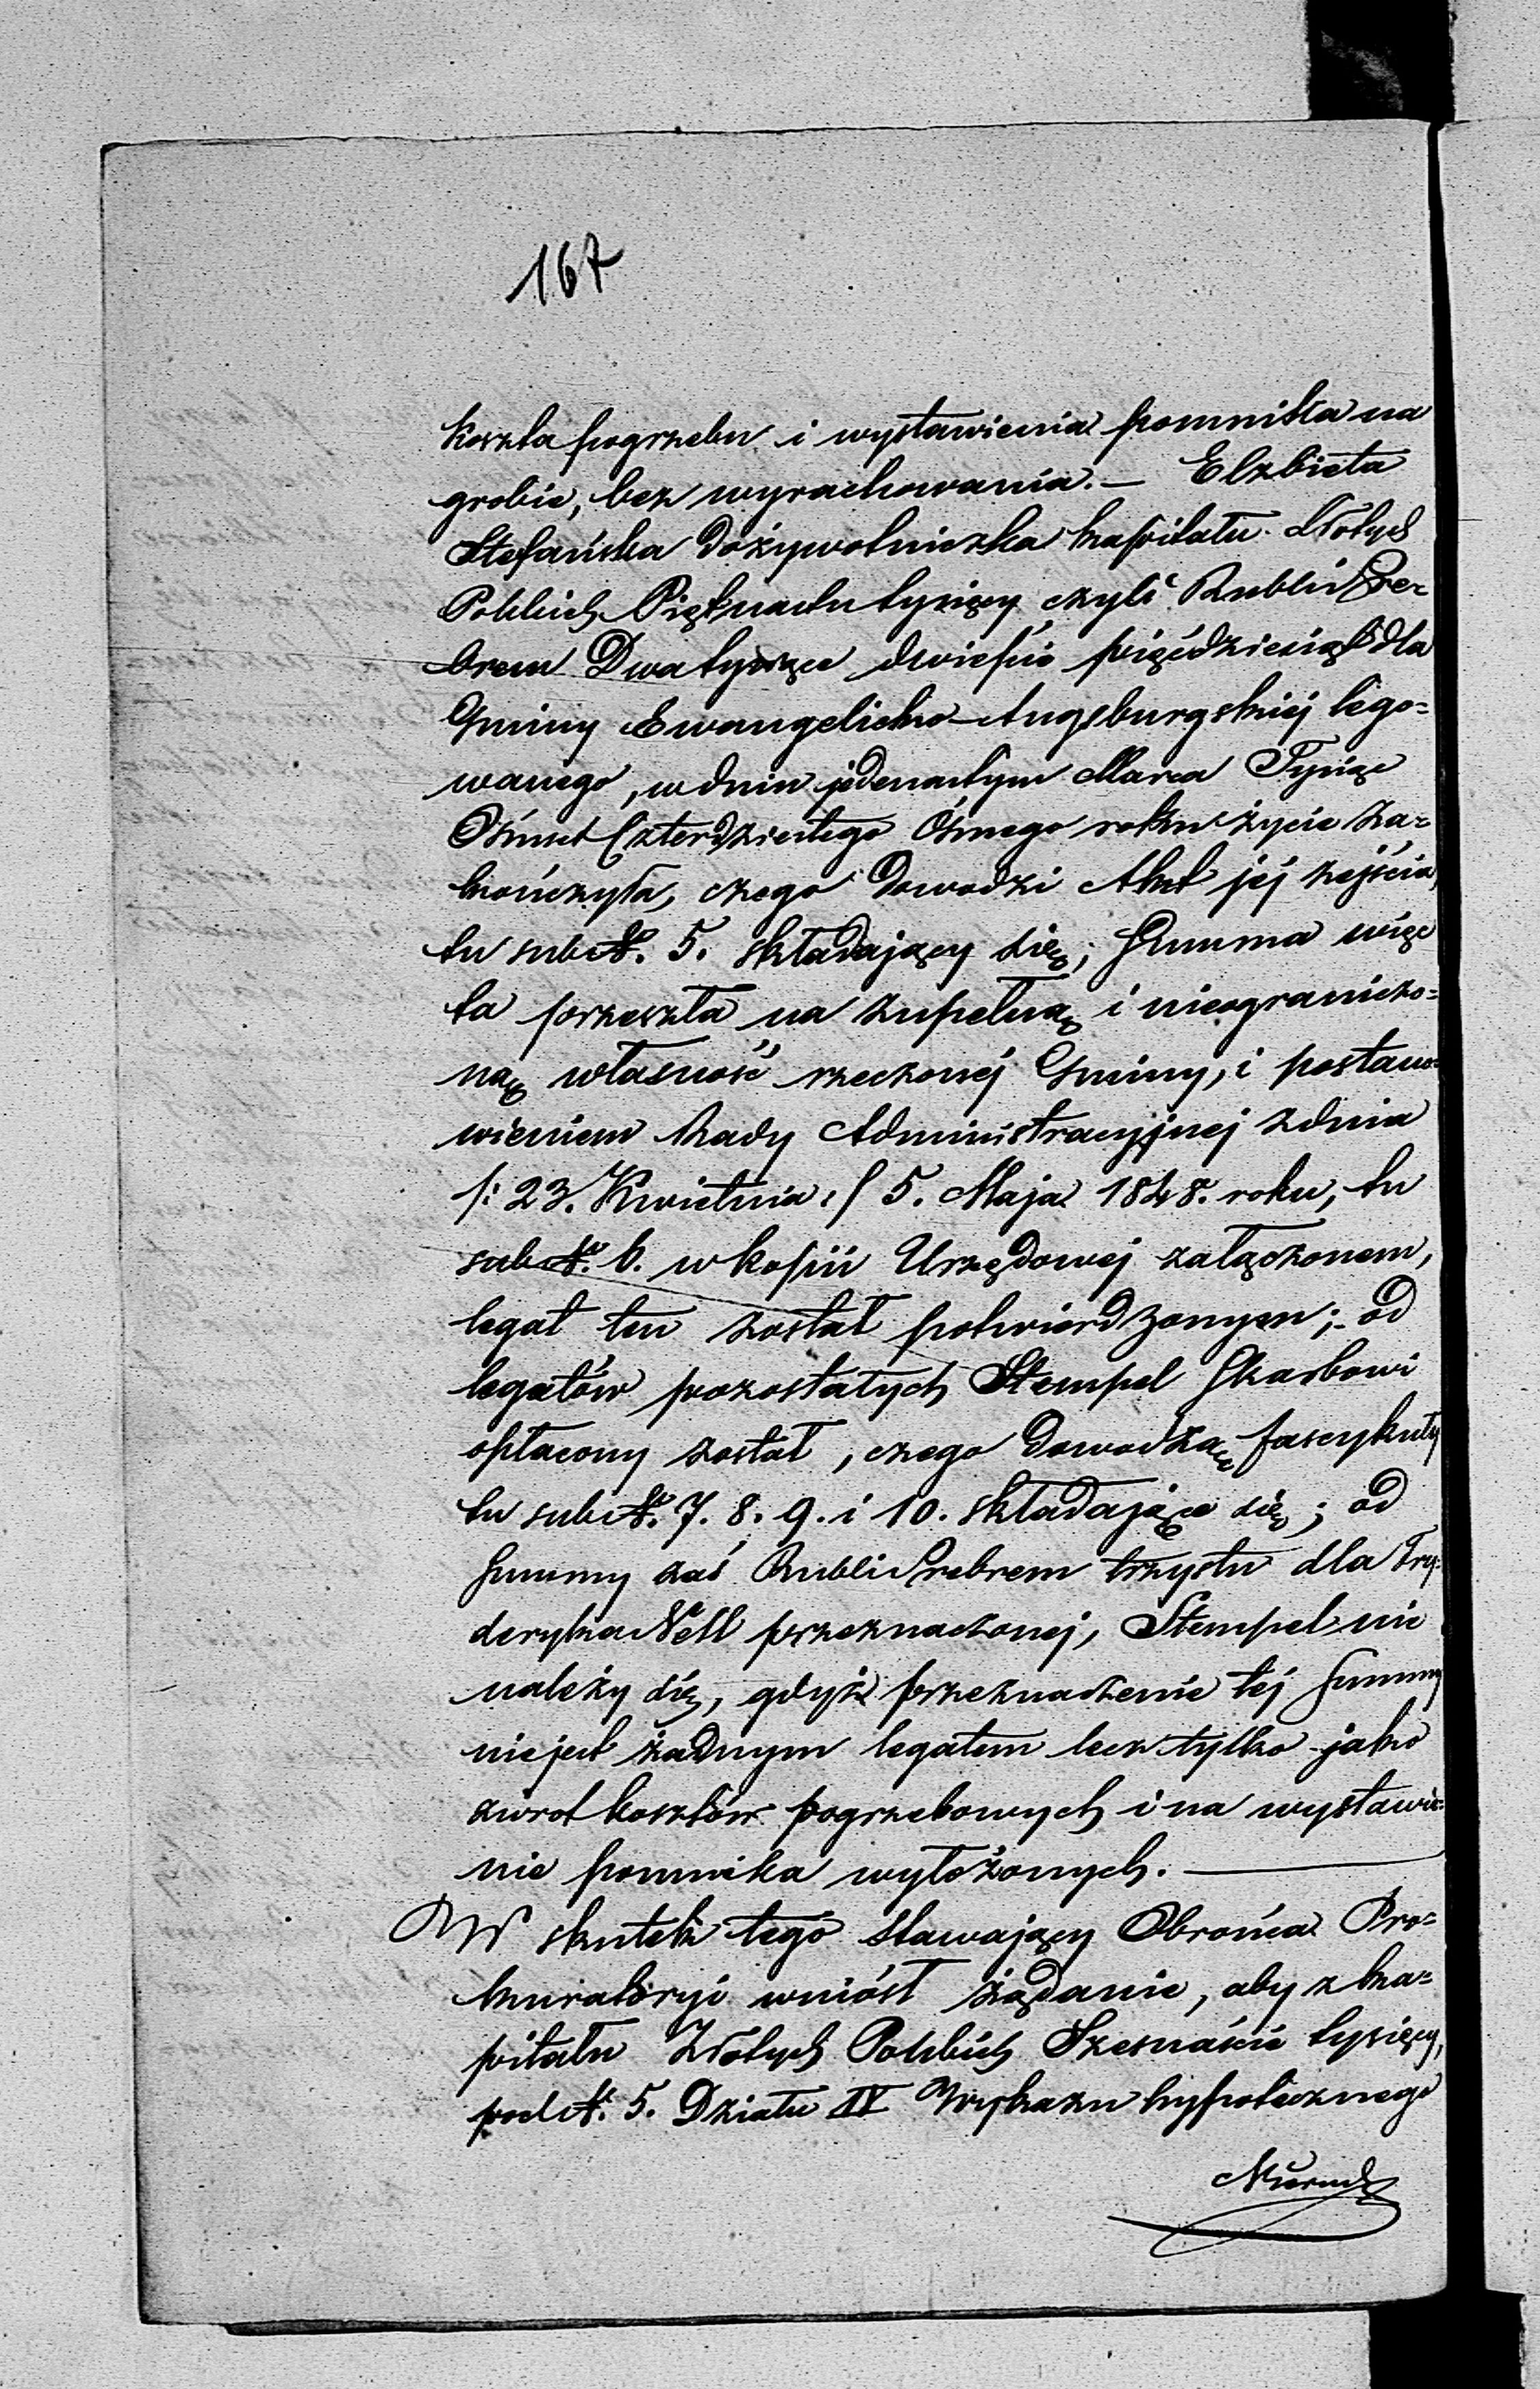 167
koszta pogrzebu i wystawienia pomnika na
grobie, bez wyrachowania. — Elżbieta
Stefańska dożywotniczka kapitału Złotych
Polskich Piętnastu tysięcy czyli Rubli Sre-
brem Dwa tysiące dwieście pięćdziesiąt dla
Gminy Ewangelicko-Augsburgskiéj lego=
wanego, w dniu jedenastym Marca Tysiąc
Ośmset Czterdziestego Ósmego roku życie za=
kończyła, czego dowodzi Akt jéj zejścia
tu sub N. 5. składający się; Summa więc
ta przeszła na zupełną i nieograniczo=
ną własność rzeczonéj Gminy, i postano=
wieniem Rady Administracyjnej z dnia
/: 23. Kwietnia :/ 5. Maja 1848. roku, tu
sub N. 6. w kopii Urzędowéj załączonem,
legat ten został potwierdzonym; od
legatów pozostałych Stempel Skarbowi
opłacony został, czego dowodzą fascykuły
tu sub N. 7. 8. 9. i 10. składające się; od
Summy zaś Rubli Srebrem trzystu dla Fry=
deryka Nell przeznaczonéj, Stempel nie
należy się, gdyż przeznaczenie téj Summy
nie jest żadnym legatem lecz tylko jako
zwrot kosztów pogrzebowych i na wystawie=
nie pomnika wyłożonych. —
W skutek tego stawający Obrońca Pro=
kuratoryi wniósł żądanie, aby z ka=
pitału Złotych Polskich Szesnaście tysięcy,
pod N. 5. Działu IV Wykazu hypotecznego